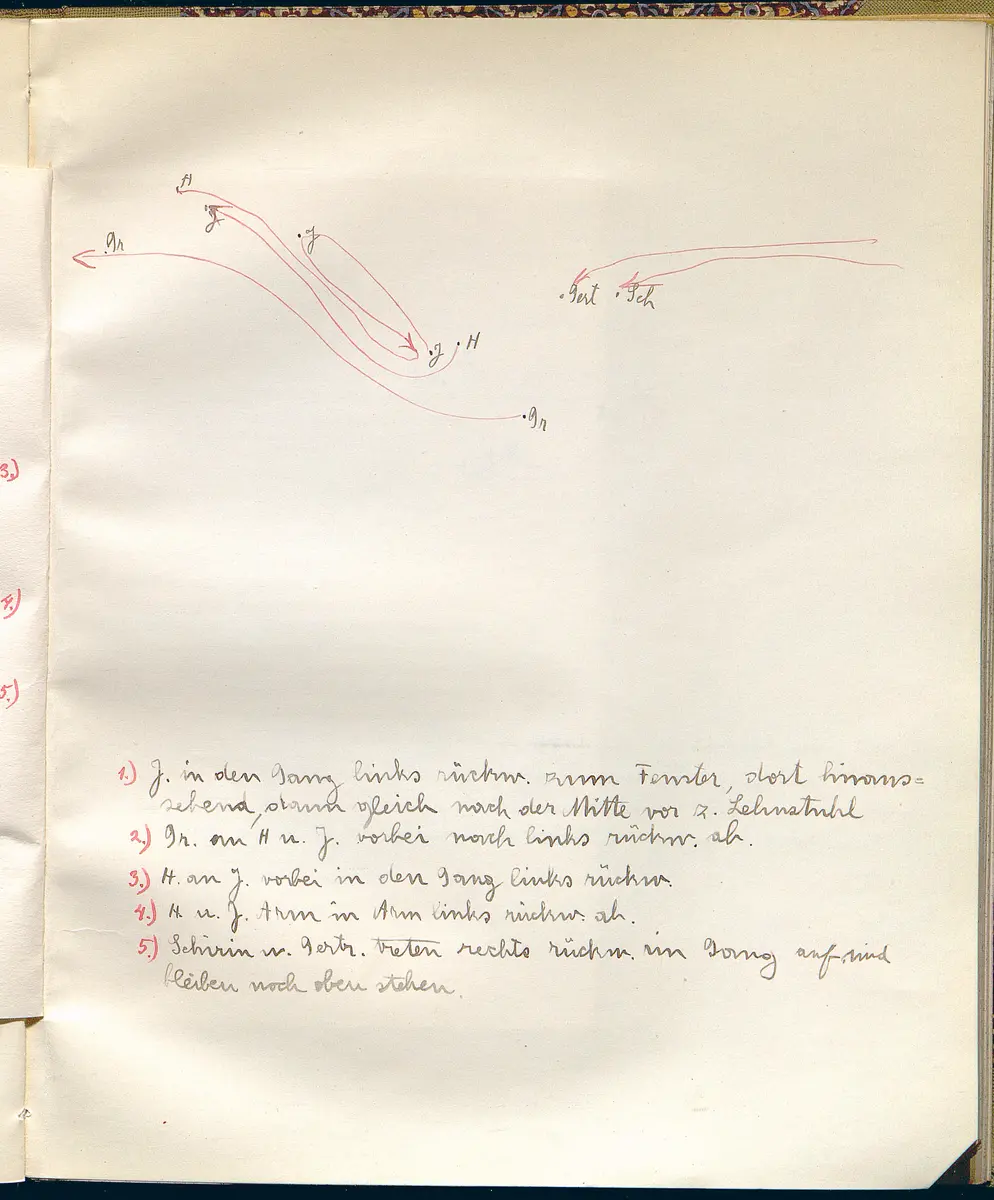 H
J
J
Gr
Gert Sch
J H
Gr
3.)
4.)
5.)
1.) J. in den Gang links rückw. zum Fenster, dort hinaus=
sehend, dann gleich nach der Mitte vor z. Lehnstuhl
2.) Gr. an H u. J. vorbei nach links rückw. ab.
3.) H. an J. vorbei in den Gang links rückw.
4.) H u. J. Arm in Arm links rückw. ab.
5.) Schirin u. Gertr. treten rechts rückw. im Gang auf und
bleiben noch oben stehen.